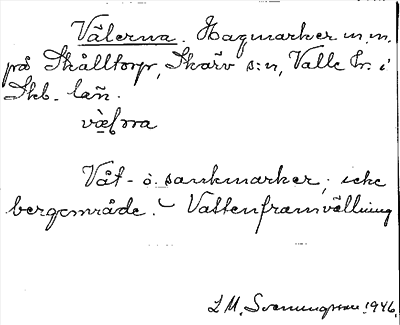 Välerna. Hagmarker m.m.
på Skålltorp, Skärv s:n, Valle hr. i
Skb. län.
Våt- o. sankmarker, icke
bergområde. Vattenframvällning
L M. Svenungsson 1946.